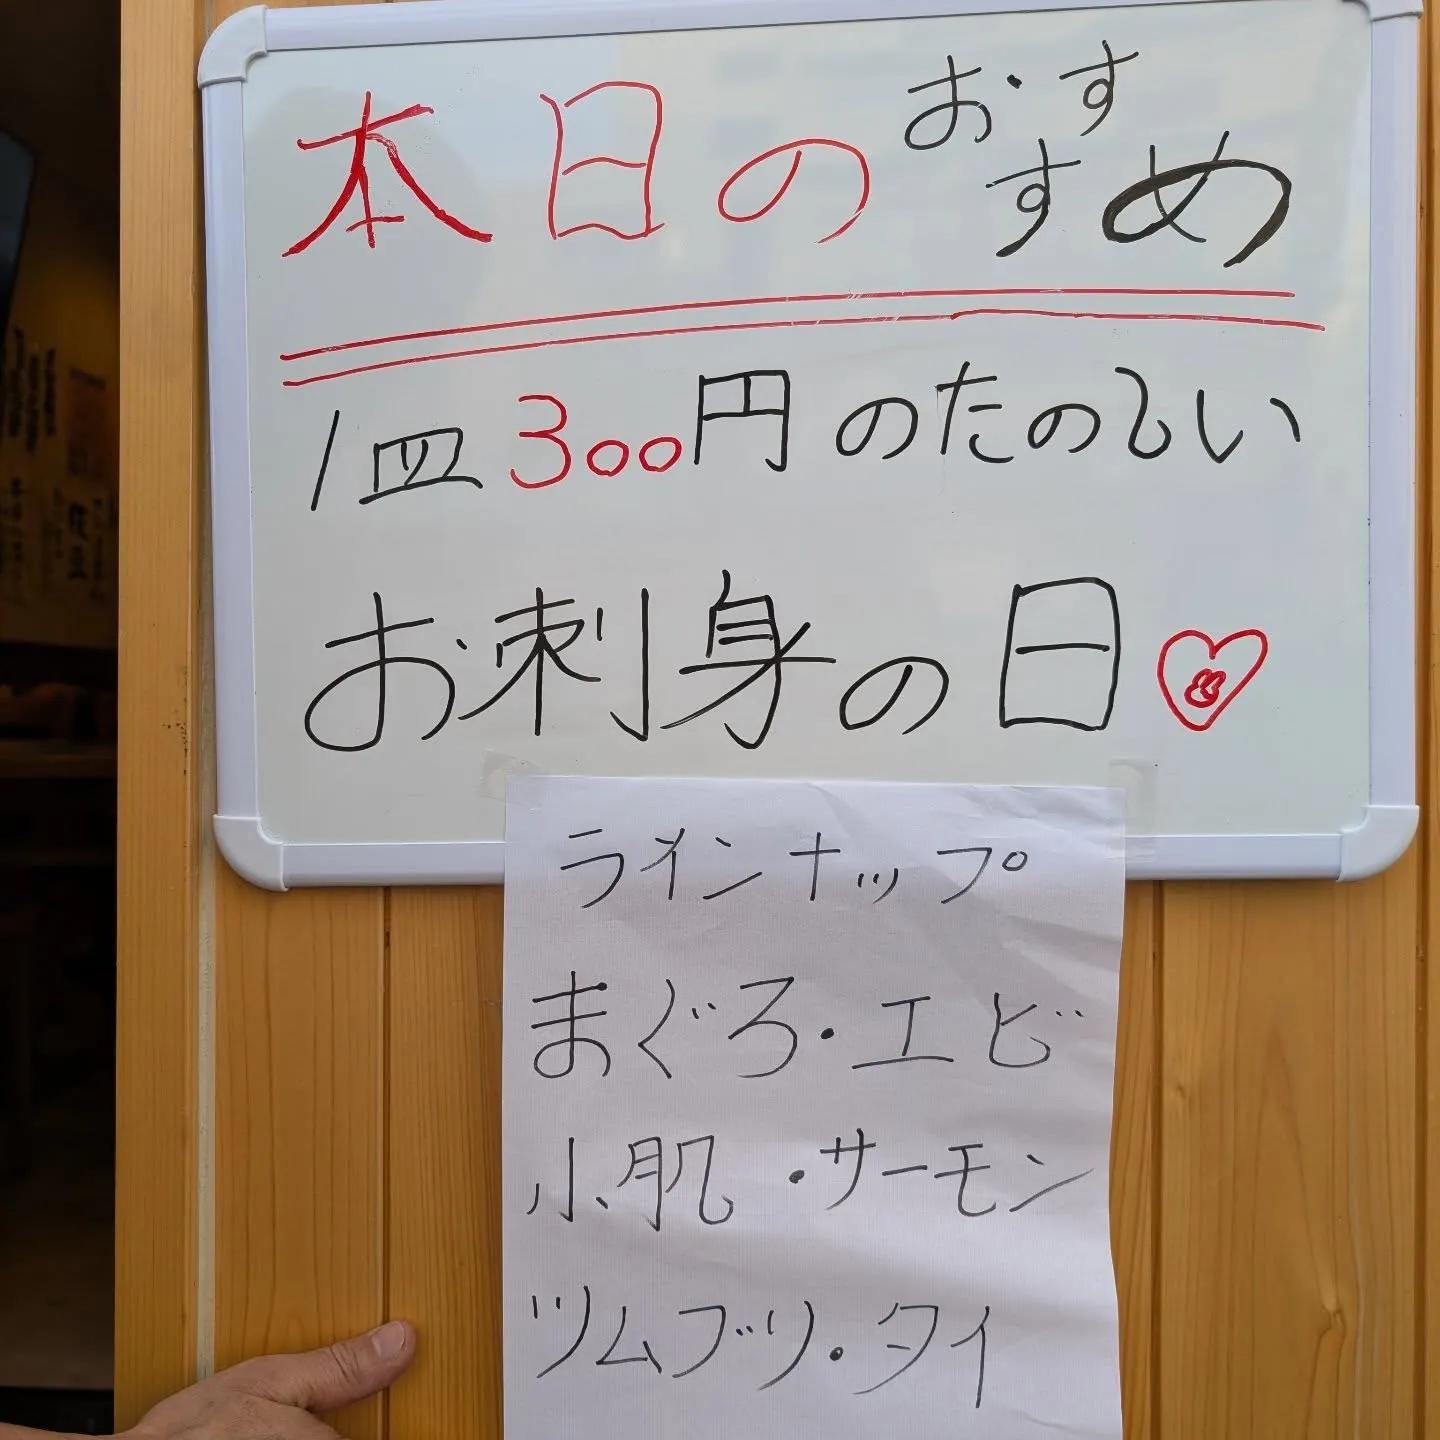 本日のおすすめ
1皿300円のたのしい
お刺身の日
ラインナップ
まぐろ・エビ
小肌・サーモン
ツムブリ・タイ